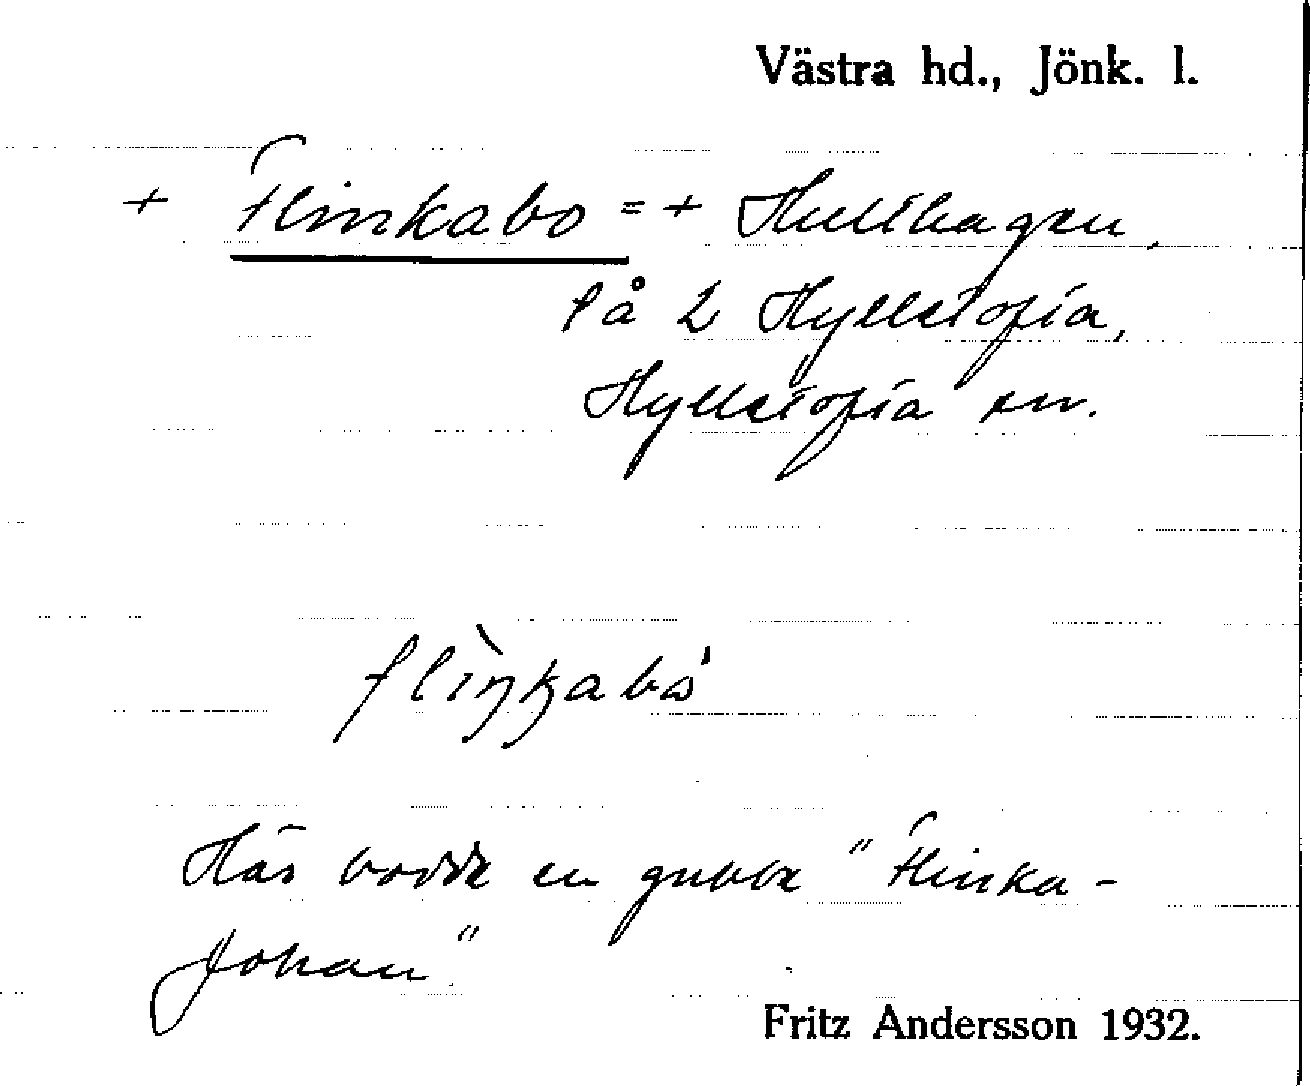 Västra hd., Jönk. l.
+ Flinkabo = + Hulthagen,
på 2 Hyllstofta,
Hyllstofta sn.
flìŋkabo'
Här bodde en gubbe "Flinka-
Johan"
Fritz Andersson 1932.